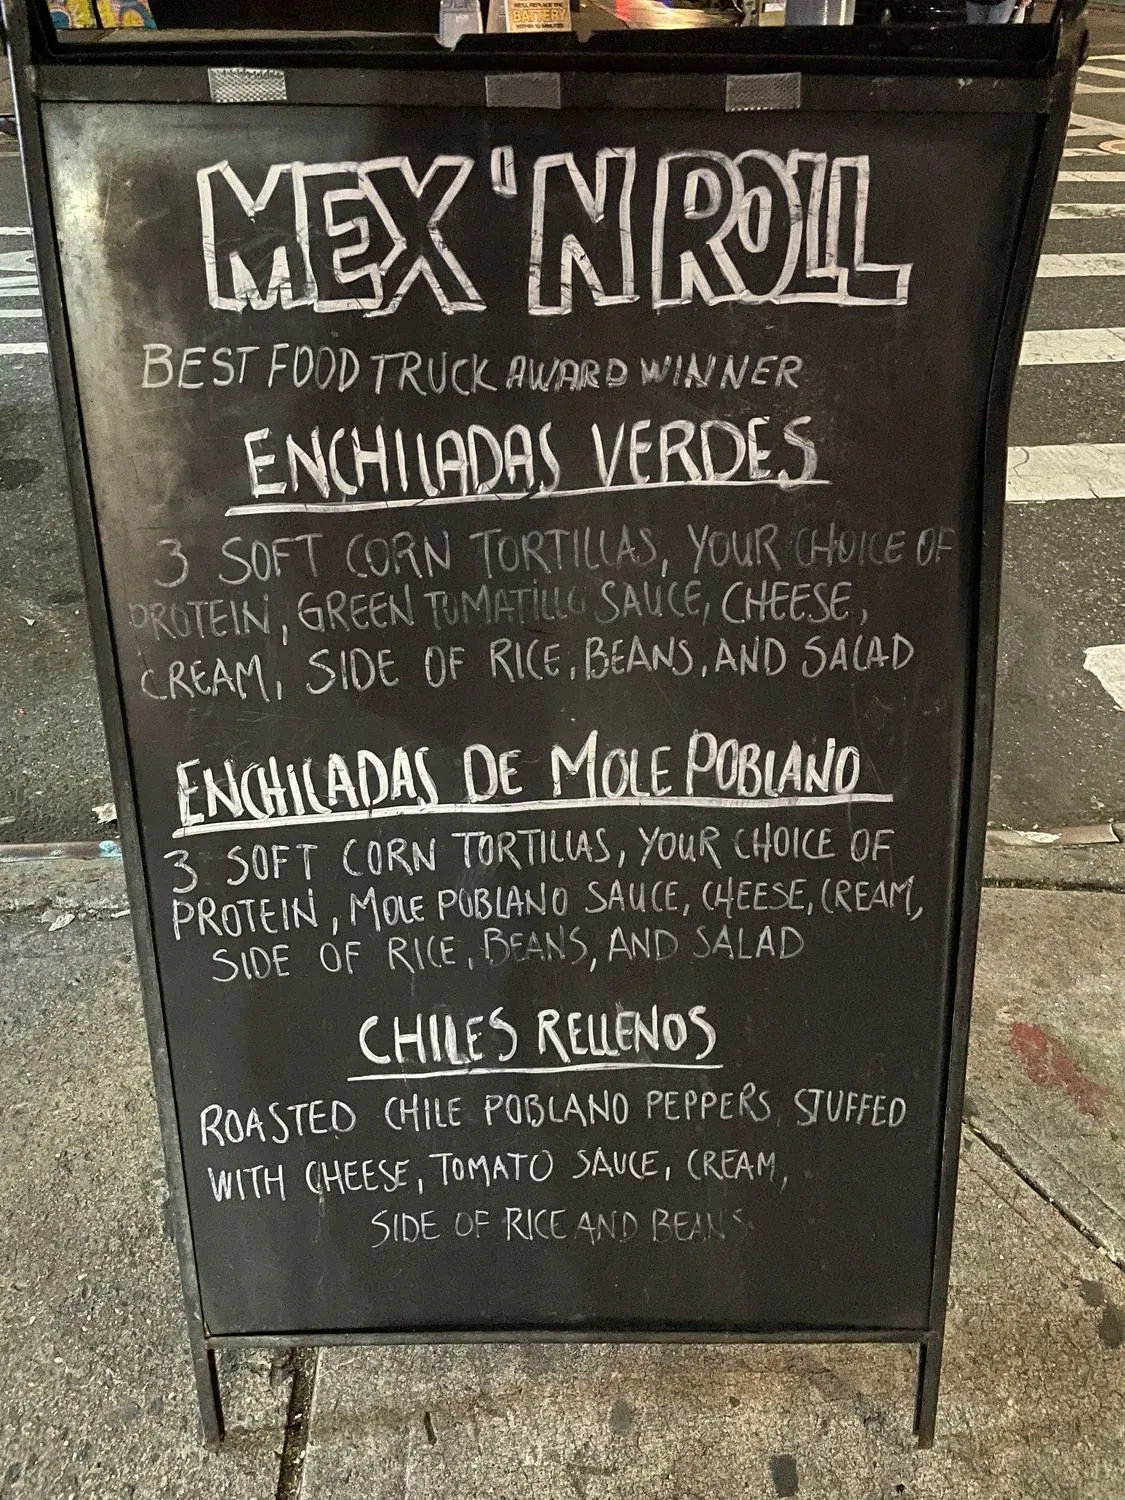 BATTERY
MEX 'N ROLL
BEST FOOD TRUCK AWARD WINNER
ENCHILADAS VERDES
3 SOFT CORN TORTILLAS, YOUR CHOICE OF
PROTEIN, GREEN TOMATILLO SAUCE, CHEESE,
CREAM, SIDE OF RICE, BEANS, AND SALAD
ENCHILADAS DE MOLE POBLANO
3 SOFT CORN TORTILLAS, YOUR CHOICE OF
PROTEIN, MOLE POBLANO SAUCE, CHEESE, CREAM,
SIDE OF RICE, BEANS, AND SALAD
CHILES RELLENOS
ROASTED CHILE POBLANO PEPPERS, STUFFED
WITH CHEESE, TOMATO SAUCE, CREAM,
SIDE OF RICE AND BEANS